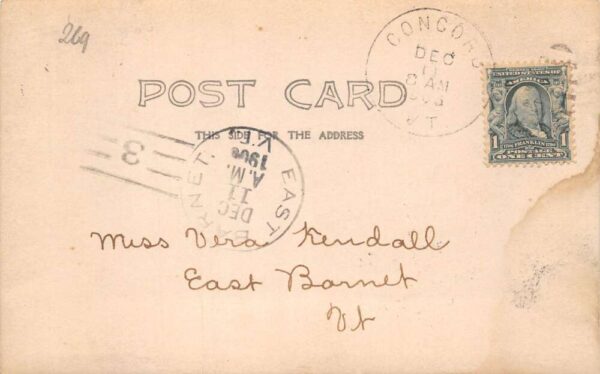 269
CONCORD
DEC
11
8 AM
VT.
POST CARD
THIS SIDE FOR THE ADDRESS
UNITED STATES OF
AMERICA
1 FRANKLIN 1
POSTAGE
ONE CENT
3
EAST BARNET.
DEC
11
A.M.
1906
VT.
Miss Vera Kendall
East Barnet
Vt